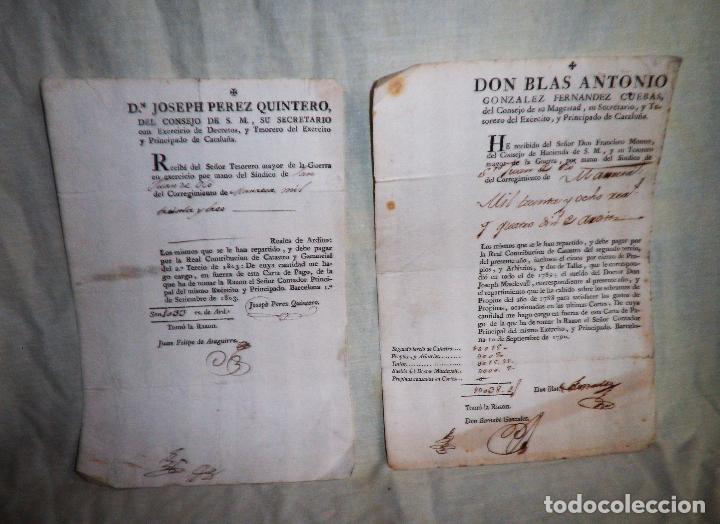 D.ⁿ JOSEPH PEREZ QUINTERO,
DEL CONSEJO DE S. M., SU SECRETARIO
con Exercicio de Decretos, y Tesorero del Exercito
y Principado de Cataluña.
Recibí del Señor Tesorero mayor de la Guerra
en exercicio por mano del Síndico de San
Juan de
del Corregimiento de Manresa mil
treinta y tres
Reales de Ardites:
Los mismos que se le han repartido, y debe pagar
por la Real Contribucion de Catastro y Ganancial
del 2.º Tercio de 1803: De cuya cantidad me ha-
go cargo, en fuerza de esta Carta de Pago, de la
que ha de tomar la Razon el Señor Contador Princi-
pal del mismo Exercito y Principado. Barcelona 1.º
de Setiembre de 1803.
Son 1033 rs. de Ard.s
Joseph Perez Quintero.
Tomó la Razon.
Juan Felipe de
DON BLAS ANTONIO
GONZALEZ FERNANDEZ CUEBAS,
del Consejo de su Magestad, su Secretario, y Te-
sorero del Exercito, y Principado de Cataluña.
HE recibido del Señor Don Francisco Montes,
del Consejo de Hacienda de S. M., y su Tesorero
mayor de la Guerra, por mano del Síndico de
Juan
del Corregimiento de Manresa
Mil treinta y ocho real.s
y quatro din.s de ardites
Los mismos que se le han repartido, y debe pagar
por la Real Contribucion de Catastro del segundo tercio,
del presente año, inclusos el cinco por ciento de Pro-
pios, y Arbitrios, y dos de Tallas, que le correspondió
en todo el de 1789; el sueldo del Doctor Don
Joseph Masdevall, correspondiente al presente año, y
el repartimiento que le ha cabido sobre los sobrantes de
Propios del año de 1788 para satisfacer los gastos de
Propinas, ocasionados en las ultimas Cortes. De cuya
cantidad me hago cargo en fuerza de esta Carta de Pa-
go, de la que ha de tomar la Razon el Señor Contador
Principal del mismo Exercito, y Principado. Barcelo-
na 10 Septiembre de 1790.
Segundo tercio de Catastro.
Propios, y Arbitrios
Tallas
Sueldo del Doctor Masdevall.
Propinas causadas en Cortes.
Don Blas Gonzalez
Tomó la Razon.
Don Bernabé Gonzalez.
todocoleccion.net